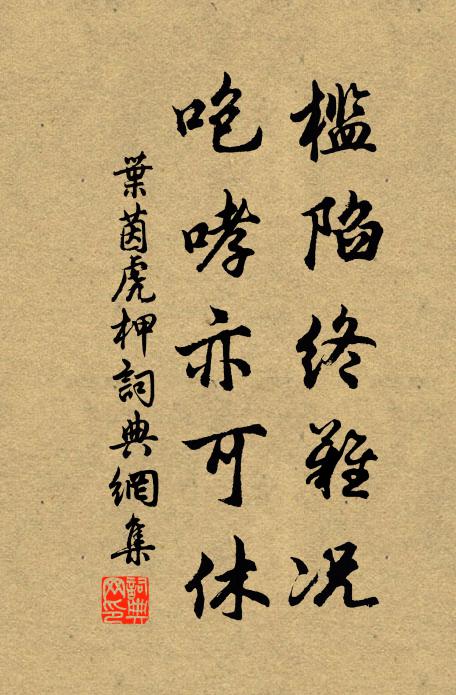 檻陷終難况
咆哮亦可休
葉茵虎柙詞典網集
詞典
网印